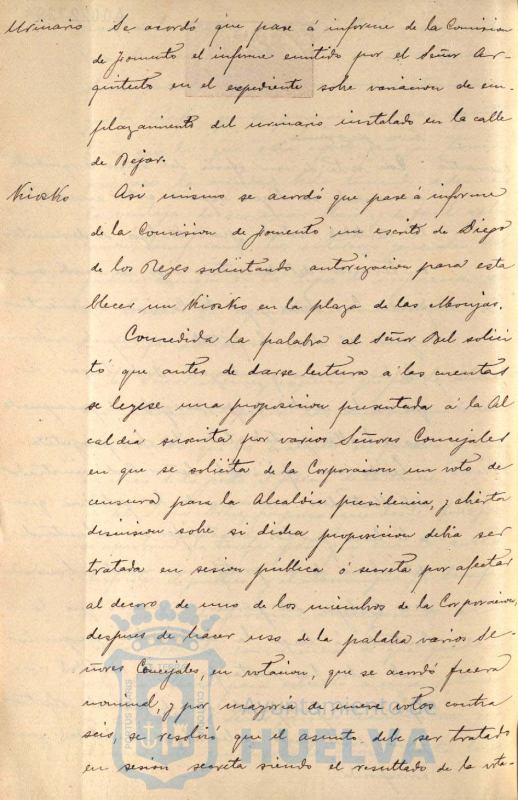 Urinario Se acordó que pase á informe de la Comision
de Fomento el informe emitido por el Señor Ar-
quitecto en el expediente sobre variacion de em-
plazamiento del urinario instalado en la calle
de Bejar.
Kiosko Asi mismo se acordó que pase á informe
de la Comision de Fomento un escrito de Diego
de los Reyes solicitando autorizacion para esta
blecer un Kiosko en la plaza de las Monjas.
Concedida la palabra al Señor Bel solici
tó que antes de darse lectura á las cuentas
se leyese una proposicion presentada á la Al
caldia suscrita por varios Señores Concejales
en que se solicita de la Corporacion un voto de
censura para la Alcaldía presidencia, y abierta
discusion sobre si dicha proposicion debia ser
tratada en sesion pública ó secreta por afectar
al decoro de uno de los miembros de la Corporacion,
despues de hacer uso de la palabra varios Se-
ñores Concejales, en votacion, que se acordó fuera
nominal, y por mayoría de nueve votos contra
seis, se resolvió que el asunto debe ser tratado
en sesion secreta siendo el resultado de la vota-
PORTUS MARIS
Ayuntamiento de
HUELVA